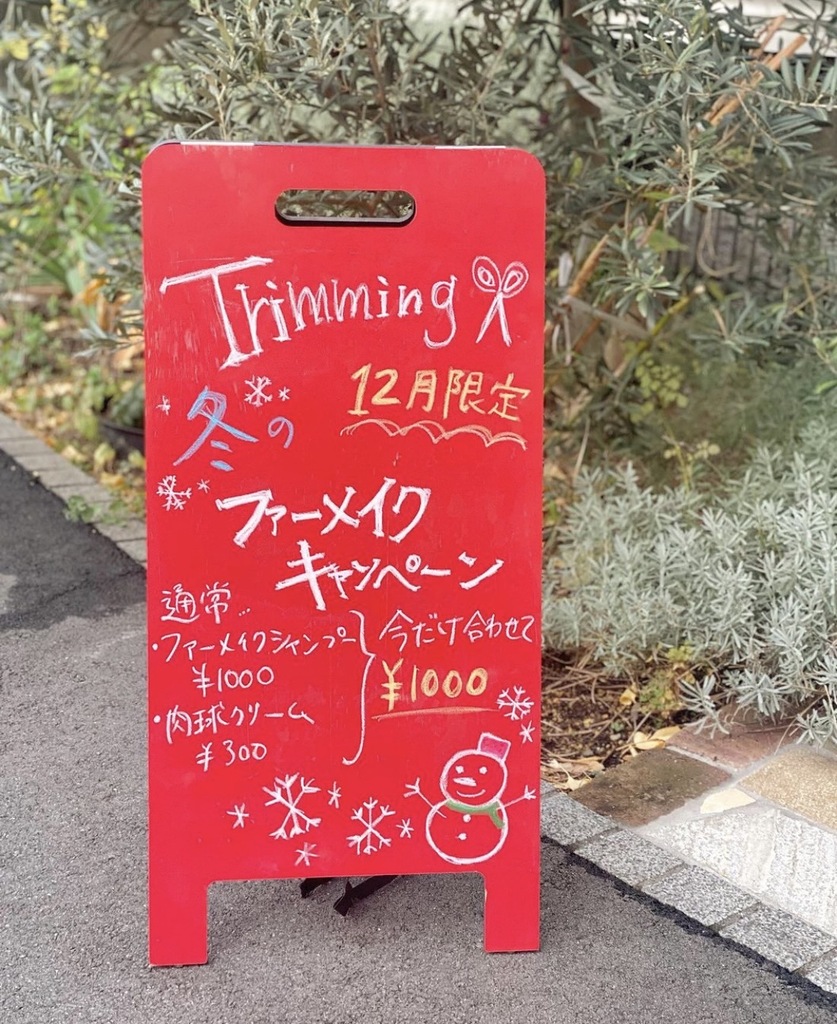 Trimming
12月限定
冬の
ファーメイク
キャンペーン
通常...
・ファーメイクシャンプー
¥1000
・肉球クリーム
¥300
今だけ合わせて
¥1000